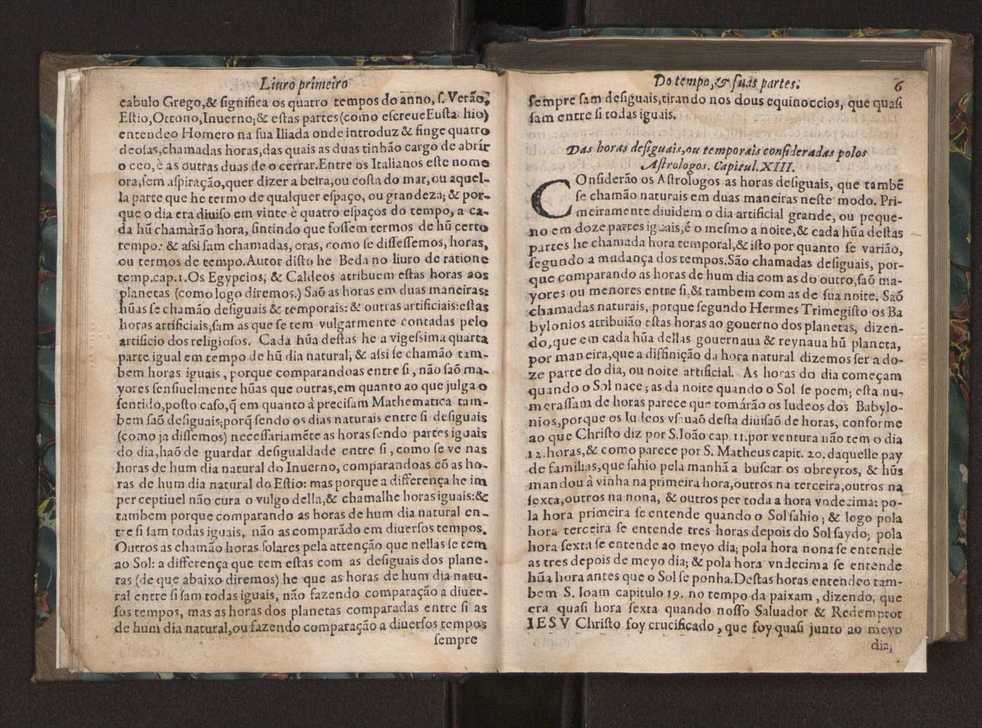 Liuro primeiro
cabulo Grego,& significa os quatro tempos do anno, s. Verão,
Estio,Octono,Inuerno;& estas partes (como escreue Eusta hio)
entendeo Homero na sua Iliada onde introduz & finge quatro
deosas,chamadas horas,das quais as duas tinhão cargo de abrir
o ceo,è as outras duas de o cerrar.Entre os Italianos este nome
ora,sem aspiração,quer dizer a beira,ou costa do mar,ou aquel-
la parte que he termo de qualquer espaço, ou grandeza; & por-
que o dia era diuiso em vinte è quatro espaços do tempo, a ca-
da hũ chamàrão hora, sintindo que fossem termos de hũ certo
tempo: & assi sam chamadas, oras, como se dissessemos, horas,
ou termos de tempo.Autor disto he Beda no liuro de ratione
temp.cap.1.Os Egypcios, & Caldeos atribuem estas horas aos
planetas (como logo diremos.) Saõ as horas em duas maneiras:
hũas se chamão desiguais & temporais: & outras artificiais:estas
horas artificiais,sam as que se tem vulgarmente contadas pelo
artificio dos religiosos. Cada hũa destas he a vigessima quarta
parte igual em tempo de hũ dia natural, & assi se chamão tam-
bem horas iguais, porque comparandoas entre si, não saõ ma-
yores sensiuelmente hũas que outras,em quanto ao que julga o
sentido,posto caso,q̃ em quanto à precisam Mathematica tam-
bem saõ desiguais;porq̃ sendo os dias naturais entre si desiguais
(como ja dissemos) necessariamẽte as horas sendo partes iguais
do dia,haõ de guardar desigualdade entre si, como se ve nas
horas de hum dia natural do Inuerno, comparandoas cõ as ho-
ras de hum dia natural do Estio: mas porque a differença he im
perceptiuel não cura o vulgo della,& chamalhe horas iguais:&
tambem porque comparando as horas de hum dia natural en-
tre si sam todas iguais, não as comparãdo em diuersos tempos.
Outros as chamão horas solares pela attenção que nellas se tem
ao Sol: a differença que tem estas com as desiguais dos plane-
tas (de que abaixo diremos) he que as horas de hum dia natu-
ral entre si sam todas iguais, não fazendo comparação a diuer-
sos tempos, mas as horas dos planetas comparadas entre si as
de hum dia natural,ou fazendo comparação a diuersos tempos
sempre
Do tempo,& suas partes. 6
sempre sam desiguais,tirando nos dous equinoccios, que quasi
sam entre si todas iguais.
Das horas desiguais,ou temporais consideradas polos
Astrologos. Capitul.XIII.
COnsiderão os Astrologos as horas desiguais, que tambẽ
se chamão naturais em duas maneiras neste modo. Pri-
meiramente diuidem o dia artificial grande, ou peque-
no em doze partes iguais,è o mesmo a noite,& cada hũa destas
partes he chamada hora temporal,& isto por quanto se varião,
segundo a mudança dos tempos.São chamadas desiguais, por-
que comparando as horas de hum dia com as do outro,saõ ma-
yores ou menores entre si,& tambem com as de sua noite. Saõ
chamadas naturais, porque segundo Hermes Trimegisto os Ba
bylonios atribuião estas horas ao gouerno dos planetas, dizen-
do,que em cada hũa dellas gouernaua & reynaua hũ planeta,
por maneira,que a diffinição da hora natural dizemos ser a do-
ze parte do dia, ou noite artificial. As horas do dia começam
quando o Sol nace; as da noite quando o Sol se poem; esta nu-
merassam de horas parece que tomárão os Iudeos dos Babylo-
nios,porque os Iudeos vsauaõ desta diuisaõ de horas, conforme
ao que Christo diz por S.Ioão cap. 11.por ventura não tem o dia
12.horas,& como parece por S. Matheus capit. 20.daquelle pay
de familias,que sahio pela manhã a buscar os obreyros, & hũs
mandou á vinha na primeira hora,outros na terceira,outros na
sexta,outros na nona, & outros per toda a hora vndezima: po-
la hora primeira se entende quando o Sol sahio; & logo pola
hora terceira se entende tres horas depois do Sol saydo; pola
hora sexta se entende ao meyo dia; pola hora nona se entende
as tres depois de meyo dia; & pola hora vndecima se entende
hũa hora antes que o Sol se ponha.Destas horas entendeo tam-
bem S. Ioam capitulo 19. no tempo da paixam, dizendo, que
era quasi hora sexta quando nosso Saluador & Redemptor
IESV Christo foy crucificado, que foy quasi junto ao meyo
dia;